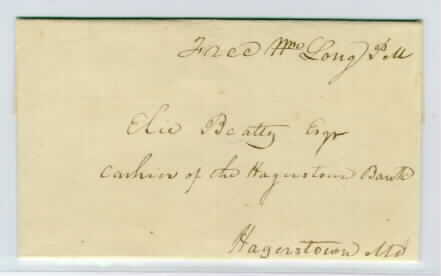 Free Wm Long P M
Elie Beatty Esqr
Cashier of the Hagerstown Bank
Hagerstown Md